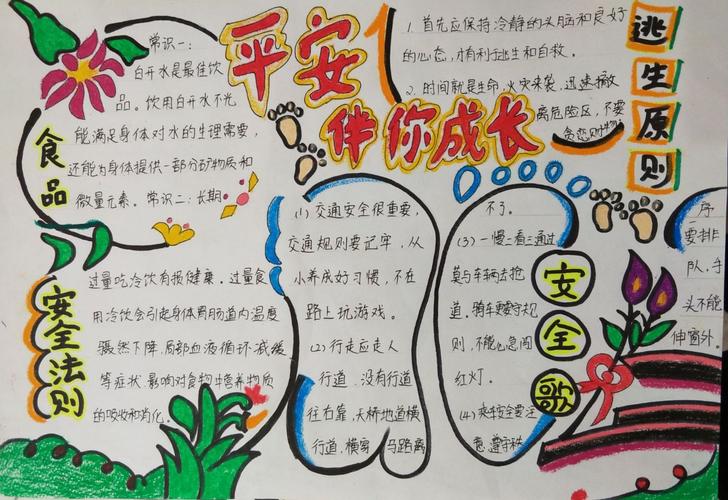 平安
伴你成长
食品
安全法则
常识一:
白开水是最佳饮
品。饮用白开水不光
能满足身体对水的生理需要,
还能为身体提供一部分矿物质和
微量元素。常识二:长期
过量吃冷饮有损健康。过量食
用冷饮会引起身体胃肠道内温度
骤然下降,局部血液循环减缓
等症状,影响对食物中营养物质
的吸收和消化。
逃生原则
1. 首先应保持冷静的头脑和良好
的心态,才有利于逃生和自救。
2. 时间就是生命,火灾来袭,迅速撤
离危险区,不要
贪恋财物
安全歌
(1) 交通安全很重要,
交通规则要记牢,从
小养成好习惯,不在
路上玩游戏。
(2) 行走应走人
行道,没有行道
往右靠,天桥地道横
行道,横穿马路离
不了。
(3) 一慢二看三通过
莫与车辆去抢
道。骑车更要守规
则,不能心急闯
红灯。
(4) 乘车安全要注
意,遵守秩
序
要排
队,手
头不能
伸窗外。